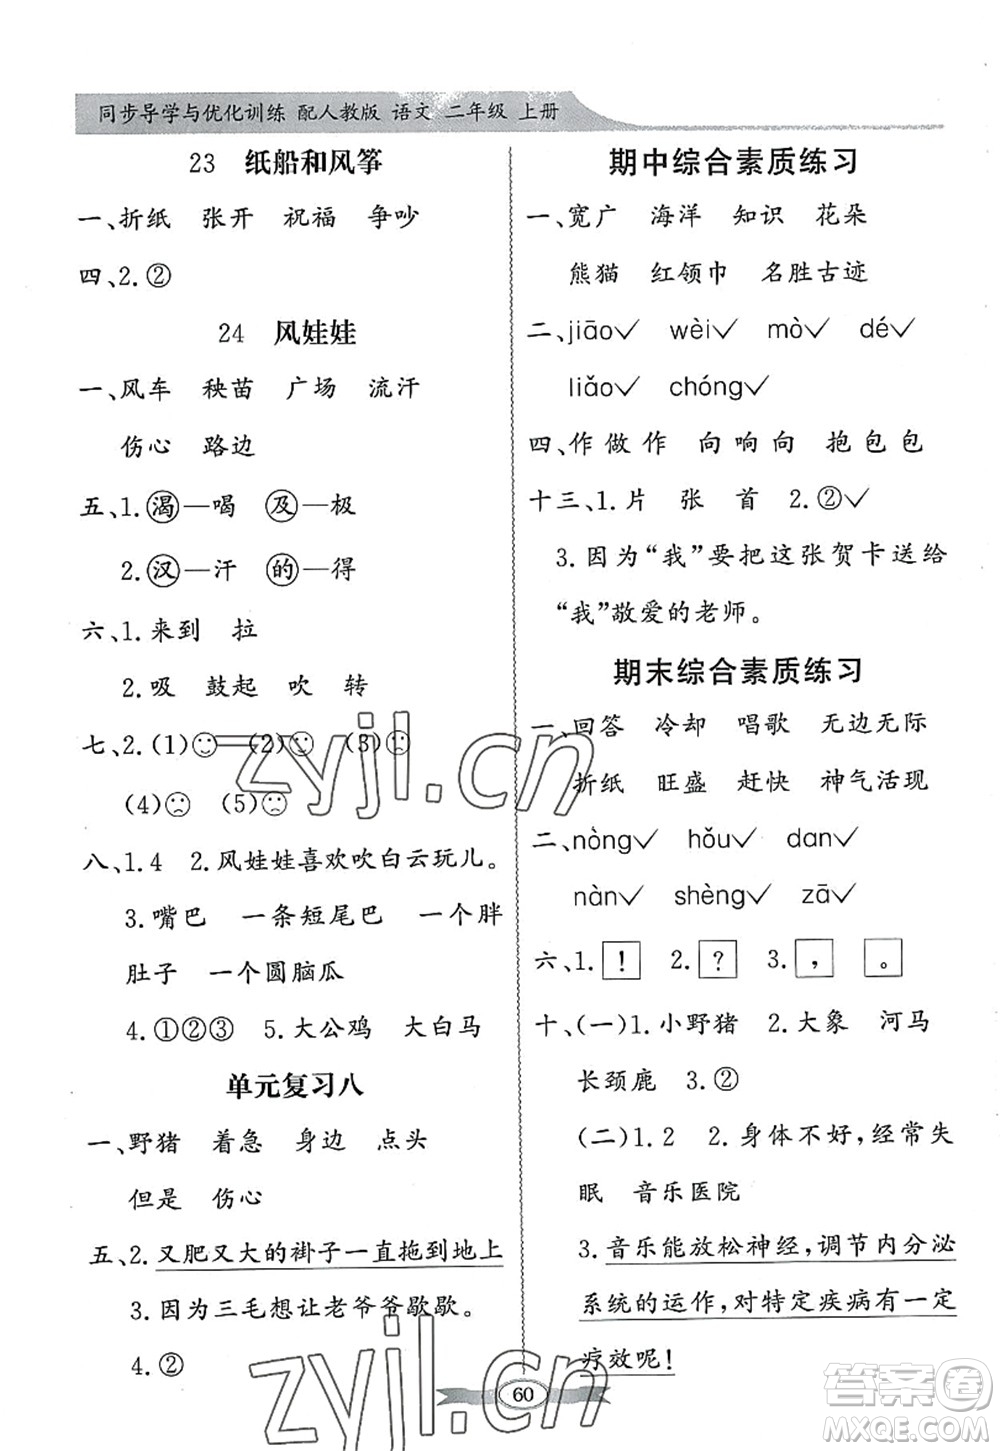 同步导学与优化训练 配人教版 语文 二年级 上册
23 纸船和风筝
一、折纸 张开 祝福 争吵
四、2.②
24 风娃娃
一、风车 秧苗 广场 流汗
伤心 路边
五、1.渴—喝 及—极
2.汉—汗 的—得
六、1.来到 拉
2.吸 鼓起 吹 转
七、2.(1)☺ (2)☺ (3)☹
(4)☹ (5)☹
八、1.4 2.风娃娃喜欢吹白云玩儿。
3.嘴巴 一条短尾巴 一个胖
肚子 一个圆脑瓜
4.①②③ 5.大公鸡 大白马
单元复习八
一、野猪 着急 身边 点头
但是 伤心
五、2.又肥又大的褂子一直拖到地上
3.因为三毛想让老爷爷歇歇。
4.②
期中综合素质练习
一、宽广 海洋 知识 花朵
熊猫 红领巾 名胜古迹
二、jiāo✓ wèi✓ mò✓ dé✓
liǎo✓ chóng✓
四、作 做 作 向 响 向 抱 包 包
十三、1.片 张 首 2.②✓
3.因为“我”要把这张贺卡送给
“我”敬爱的老师。
期末综合素质练习
一、回答 冷却 唱歌 无边无际
折纸 旺盛 赶快 神气活现
二、nòng✓ hǒu✓ dan✓
nàn✓ shèng✓ zā✓
六、1.！ 2.？ 3.， 。
十、(一)1.小野猪 2.大象 河马
长颈鹿 3.②
(二)1.2 2.身体不好,经常失
眠 音乐医院
3.音乐能放松神经,调节内分泌
系统的运作,对特定疾病有一定
疗效呢!
60
zyjl.cn
zyjl.cn
答案圈
MXQE.COM